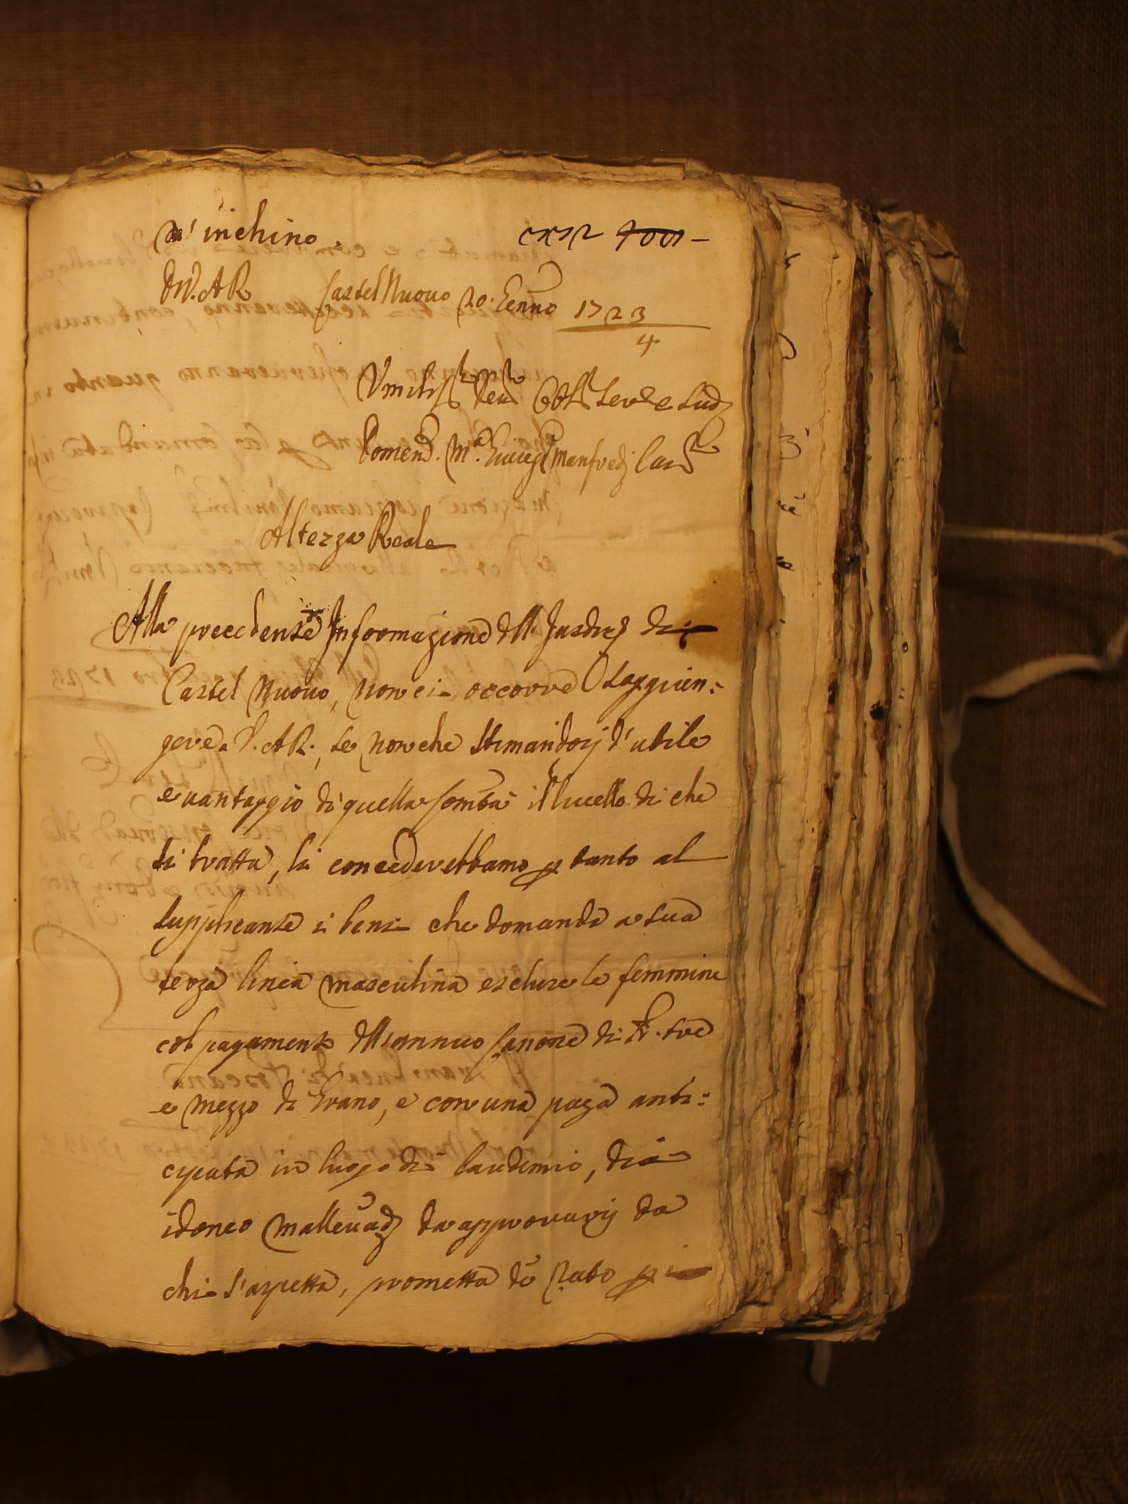 m' inchino.
D.V.A.R. Castel Nuovo 20. Genn.o 1723
4
Umiliss.mo Dev.mo Obbl. Ser.e e Sud.
Domen.
Altezza Reale
Alla precedente Informazione dell. Jusdic.e di
Castel Nuovo, non ci occorre soggiun:
gere a V. A.R., se non che stimandosi d'utile
e vantaggio di quella Comtà il livello di che
si tratta, si concederebbamo p. tanto al
supplicante i beni che domanda a sua
terza linea masculina escluse le femmine
col pagamento dell'annuo canone di tre
e mezzo di Grano, e con una paga anti:
cipata in luogo di laudemio, dia
idoneo mallevad.e da approvarsi da
chi s'aspetta, prometta de rato p. i